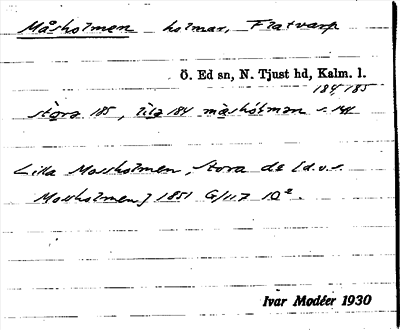 Måsholmen holmar, Flatvarp
Ö. Ed sn, N. Tjust hd, Kalm. l.
184, 185
stora 185, lilla 184 måshólmen s. 144
Lilla Mossholmen, stora de [d.v.s.
Mossholmen] 1851 G/11.7 10².
Ivar Modéer 1930